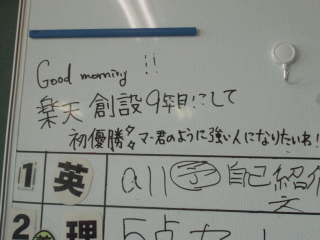 Good morning !!
楽天 創設9年目にして
初優勝〃 マー君のように強い人になりたいね!
1 英 all 予 自己紹介
2 理 5点セット